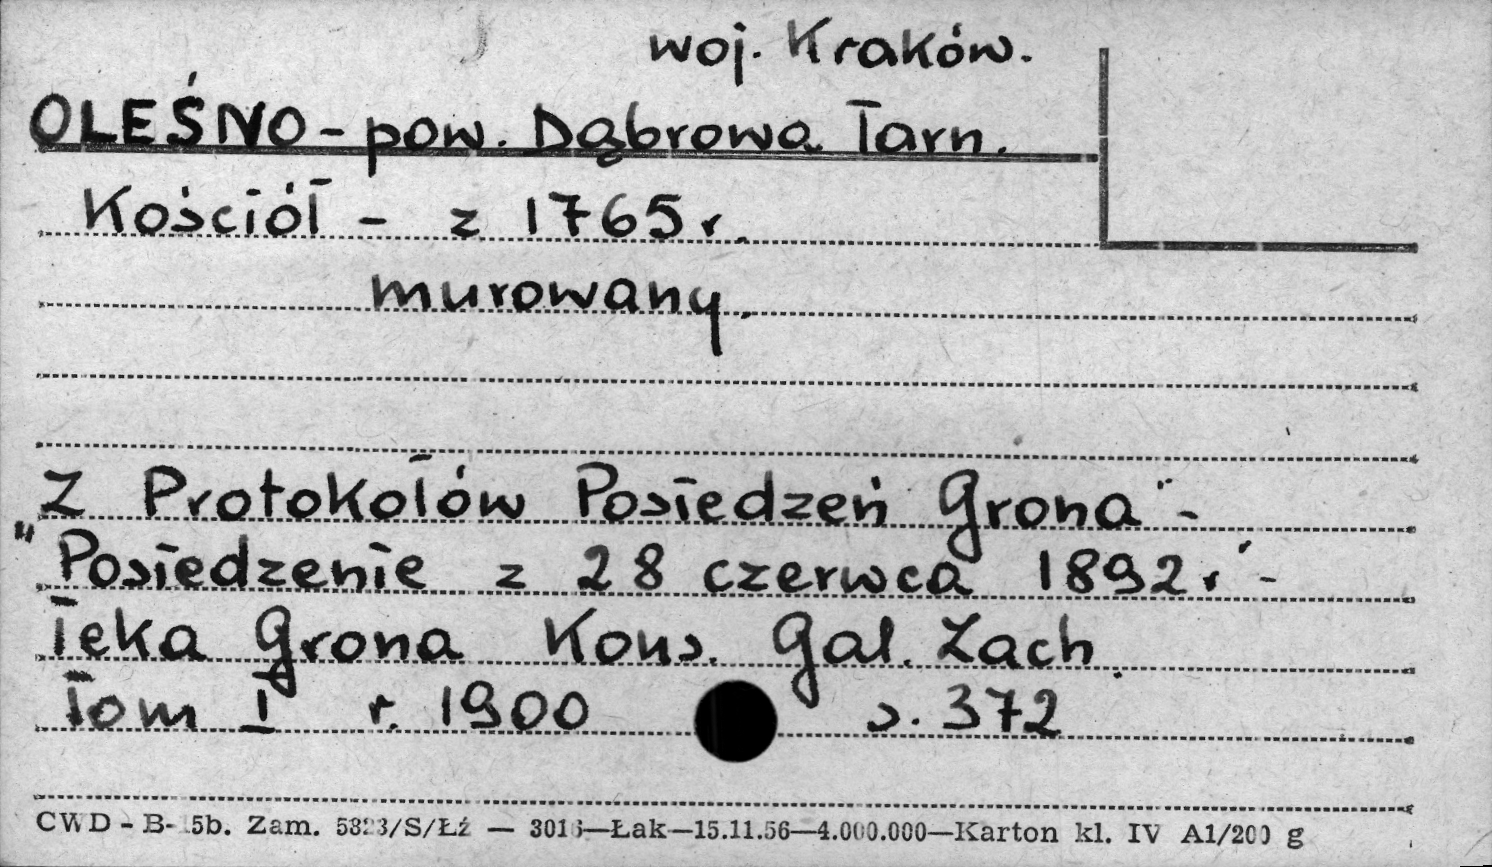 woj. Kraków.
OLEŚNO - pow. Dąbrowa Tarn.
Kościół - z 1765 r.
murowany.
Z Protokołów Posiedzeń Grona" -
"Posiedzenie z 28 czerwca 1892 r" -
Teka Grona Kons. Gal. Zach.
Tom I r. 1900 s. 372
CWD - B- 5b. Zam. /S/Łź — —Łak—15.11.56—4.000.000—Karton kl. IV A1/200 g